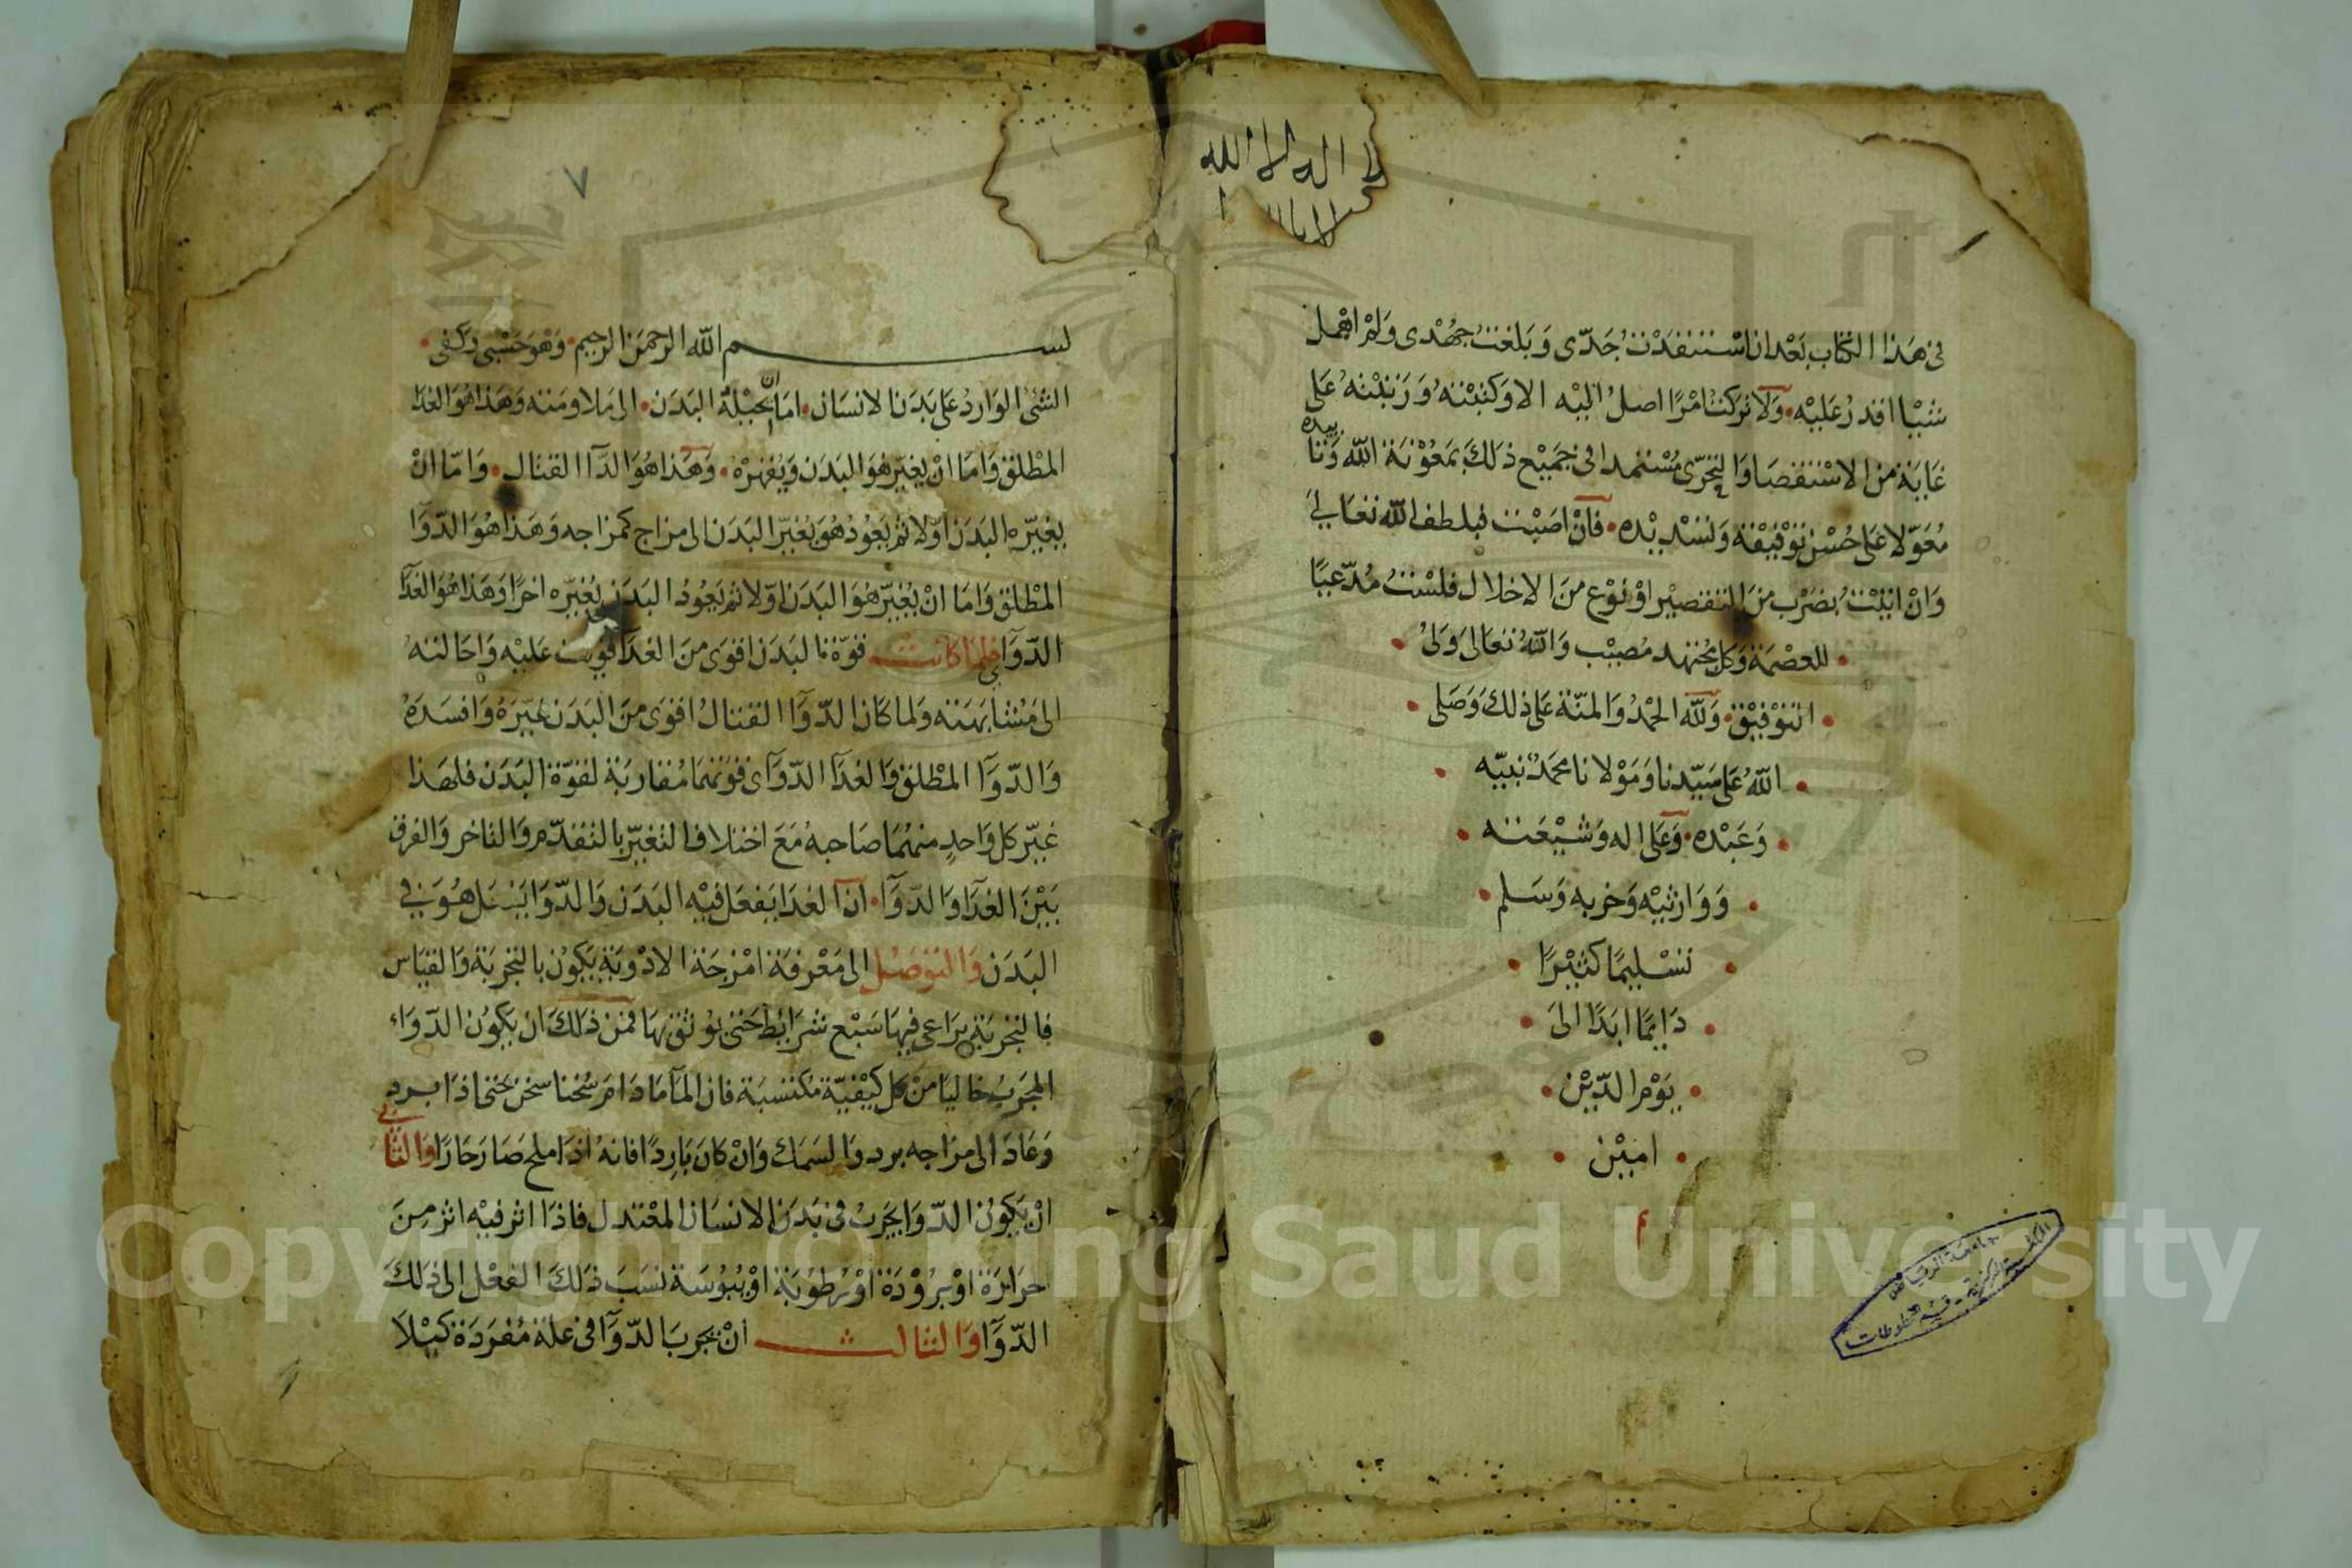 لا اله الا الله
في هذا الكتاب بعد ان استنفدت جدي وبلغت جهدي ولم اهمل
شيا اقدر عليه ولا تركت امرا اصل اليه الا وكتبته ورتبته على
غاية من الاستقصا والتحري مستمدا في جميع ذلك بمعونة الله وتاييده
معولا على حسن توفيقه وتسديده فان اصبت فبلطف الله تعالى
وان اتيت بضرب من التقصير او نوع من الاخلال فلست مدعيا
للعصمة وكل مجتهد مصيب والله تعالى ولي
التوفيق ولله الحمد والمنة على ذلك وصلى
الله على سيدنا ومولانا محمد نبيه
وعبده وعلى اله وشيعته
ووارثيه وحزبه وسلم
تسليما كثيرا
دايما ابدا الى
يوم الدين
امين
م
جامعة الرياض
المكتبة المركزية - قسم المخطوطات
٧
بسم الله الرحمن الرحيم وهو حسبي وكفى
الشى الوارد على بدن الانسان اما ان يحيله البدن الى ملاومته وهذا هو الغذا
المطلق واما ان يغير هو البدن ويقهره وهذا هو الدآ القتال واما ان
يغيره البدن اولا ثم يعود هو يغير البدن الى مزاج كمزاجه وهذا هو الدوا
المطلق واما ان يغير هو البدن اولا ثم يعود البدن يغيره اخرا وهذا هو الغذآ
الدوآي فلما كانت قوة البدن اقوى من الغذآ قويت عليه واحالته
الى مشابهته ولما كان الدوآ القتال اقوى من البدن غيره وافسده
والدوآ المطلق والغذآ الدوآى قوتهما مقاربة لقوة البدن فلهذا
غير كل واحد منهما صاحبه مع اختلاف التغير بالتقدم والتاخر والفرق
بين الغذآ والدوآ ان الغذا يفعل فيه البدن والدوا يفعل هو في
البدن والتوصل الى معرفة امزجة الادوية يكون بالتجربة والقياس
فالتجربة يراعى فيها سبع شرايط حتى يوثق بها فمن ذلك ان يكون الدواء
المجرب خاليا من كل كيفية مكتسبة فان المآ مادام سخنا سخن حتى اذا برد
وعاد الى مزاجه برد والسمك وان كان باردا فانه اذا ملح صار حارا والثاني
ان يكون الدوا يجرب في بدن الانسان المعتدل فاذا اثر فيه اثر من
حرارة او برودة او رطوبة او يبوسة نسب ذلك الفعل الى ذلك
الدوآ والثالث ان يجرب الدوآ في علة مفردة كيلا
Copyright © King Saud University
1957